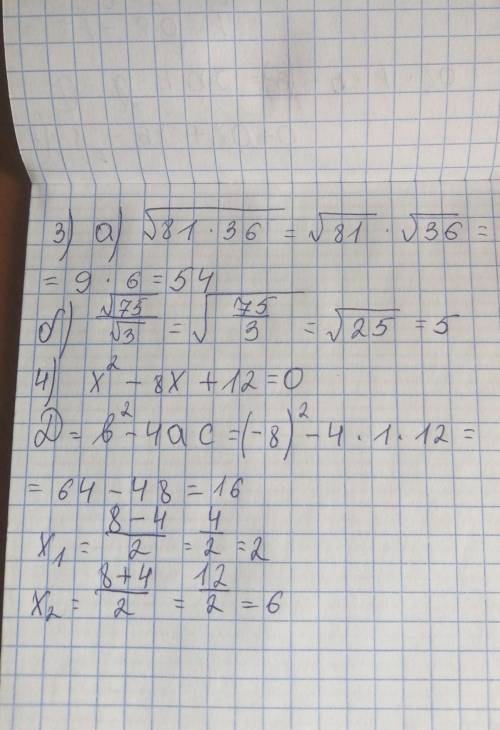 3) а) √81 · 36 = √81 · √36 =
= 9 · 6 = 54
б) √75/√3 = √75/3 = √25 = 5
4) x² - 8x + 12 = 0
D = b² - 4ac = (-8)² - 4 · 1 · 12 =
= 64 - 48 = 16
x₁ = 8 - 4/2 = 4/2 = 2
x₂ = 8 + 4/2 = 12/2 = 6